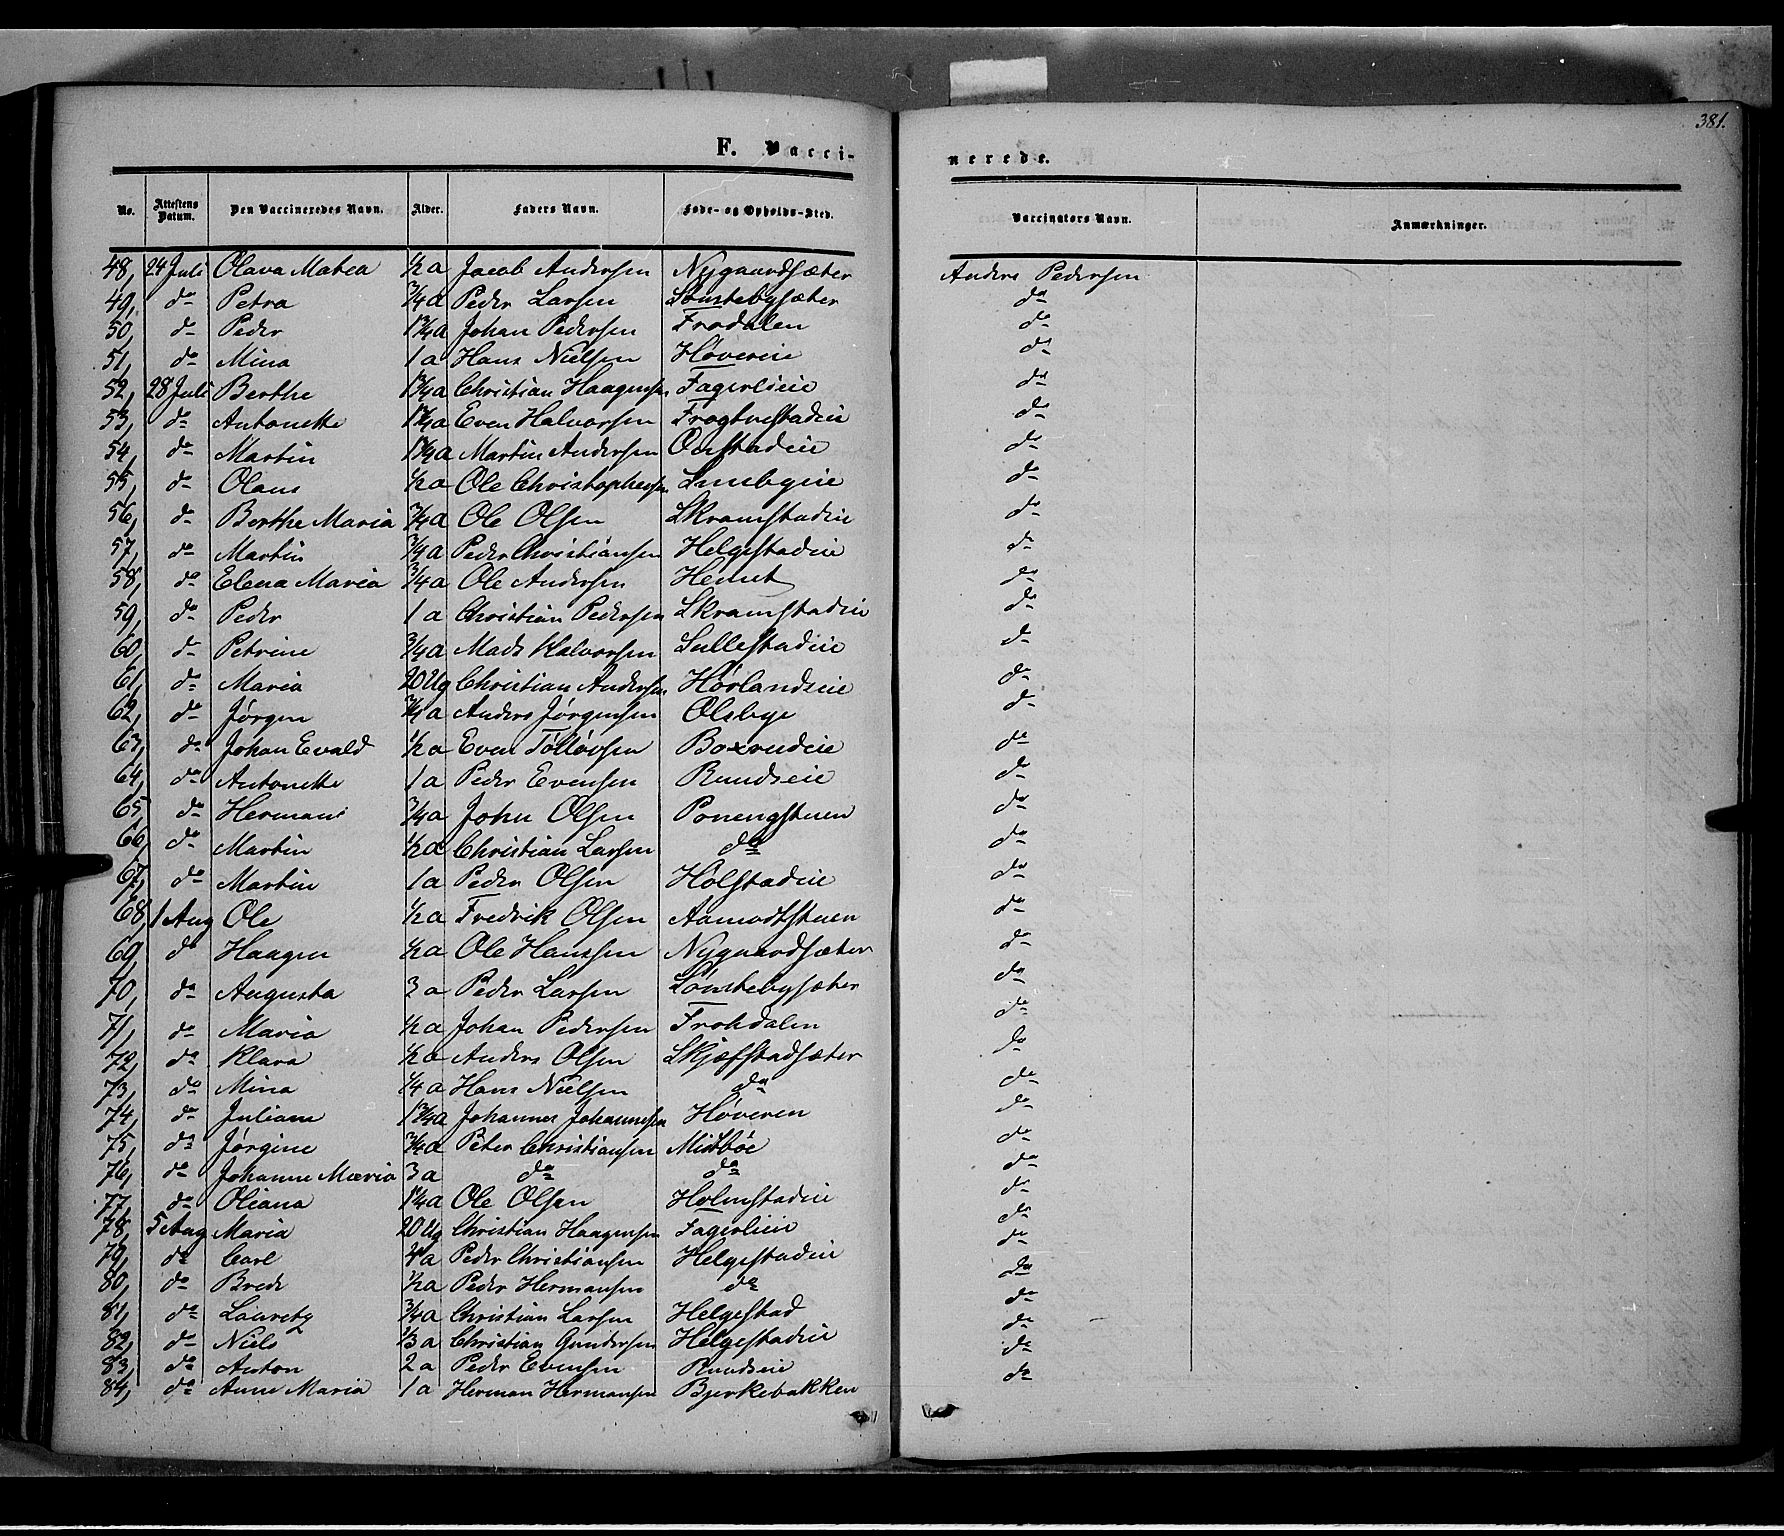 381.
F. Vacci-
nerede.
No. Attestens Datum. Den Vaccineredes Navn. Alder. Faders Navn. Føde- og Opholds-Sted. Vaccinators Navn. Anmærkninger.
48, 24 Juli Olava Matea ½ a Jacob Andersen Nygaardsæter Anders Pedersen
49, do Petra ¾ a Peder Larsen Lønstebysæter do
50, do Peder 1¾ a Johan Pedersen Frodalen do
51, do Mina 1 a Hans Nielsen Høvereie do
52, 28 Juli Berthe 1¾ a Christian Haagensen Fagerlieie do
53, do Antonette Even Halvorsen do
54, do Martin Martin Andersen do
55, do Olaus ½ a Ole Christophersen do
56, do Berthe Maria ¾ a Ole Olsen Skramstadeie do
57, do Martin ¾ a Peder Christiansen Helgestadeie do
58, do Elena Maria ¾ a Ole Andersen Hemt do
59, do Peder 1 a Christian Pedersen Skramstadeie do
60, do Petrine ¾ a Mads Halvorsen Sullestadeie do
61, do Maria 20 Ug Christian Andersen Hørlandseie do
62, do Jørgen ¾ a Anders Jørgensen Olsbye do
63, do Johan Evald ½ a Even Tølløvsen Boxrudeie do
64, do Antonette 1 a Peder Evensen Rundseie do
65, do Herman ¾ a John Olsen Ponengstuen do
66, do Martin ½ a Christian Larsen do do
67, do Martin 1 a Peder Olsen Holstadeie do
68, 1 Aug Ole ½ a Fredrik Olsen Aamodtstuen do
69, do Haagen ½ a Ole Hanssen Nygaardsæter do
70, do Augusta 3 a Peder Larsen Lønstebysæter do
71, do Maria ½ a Johan Pedersen Frohdalen do
72, do Klara ½ a Anders Olsen Skjefstadsæter do
73, do Mina ¼ a Hans Nielsen do do
74, do Juliane 1¾ a Johannes Johannesen Høveren do
75, do Jørgine ¾ a Peter Christiansen Midtbøe do
76, do Johanne Maria 3 a do do do
77, do Oliana 1¼ a Ole Olsen Holmstadeie do
78, 5 Aug Maria 20 Ug Christian Haagensen Fagerlieie do
79, do Carl Peder Christiansen Helgestadeie do
80, do Brede ½ a Peder Hermansen do do
81, do Lauretz ¾ a Christian Larsen Helgestad do
82, do Niels ⅓ a Christian Gundersen Helgestadeie do
83, do Anton 2 a Peder Evensen Rundseie do
84, do Anne Maria 1 a Herman Hermansen Bjerkebakken do